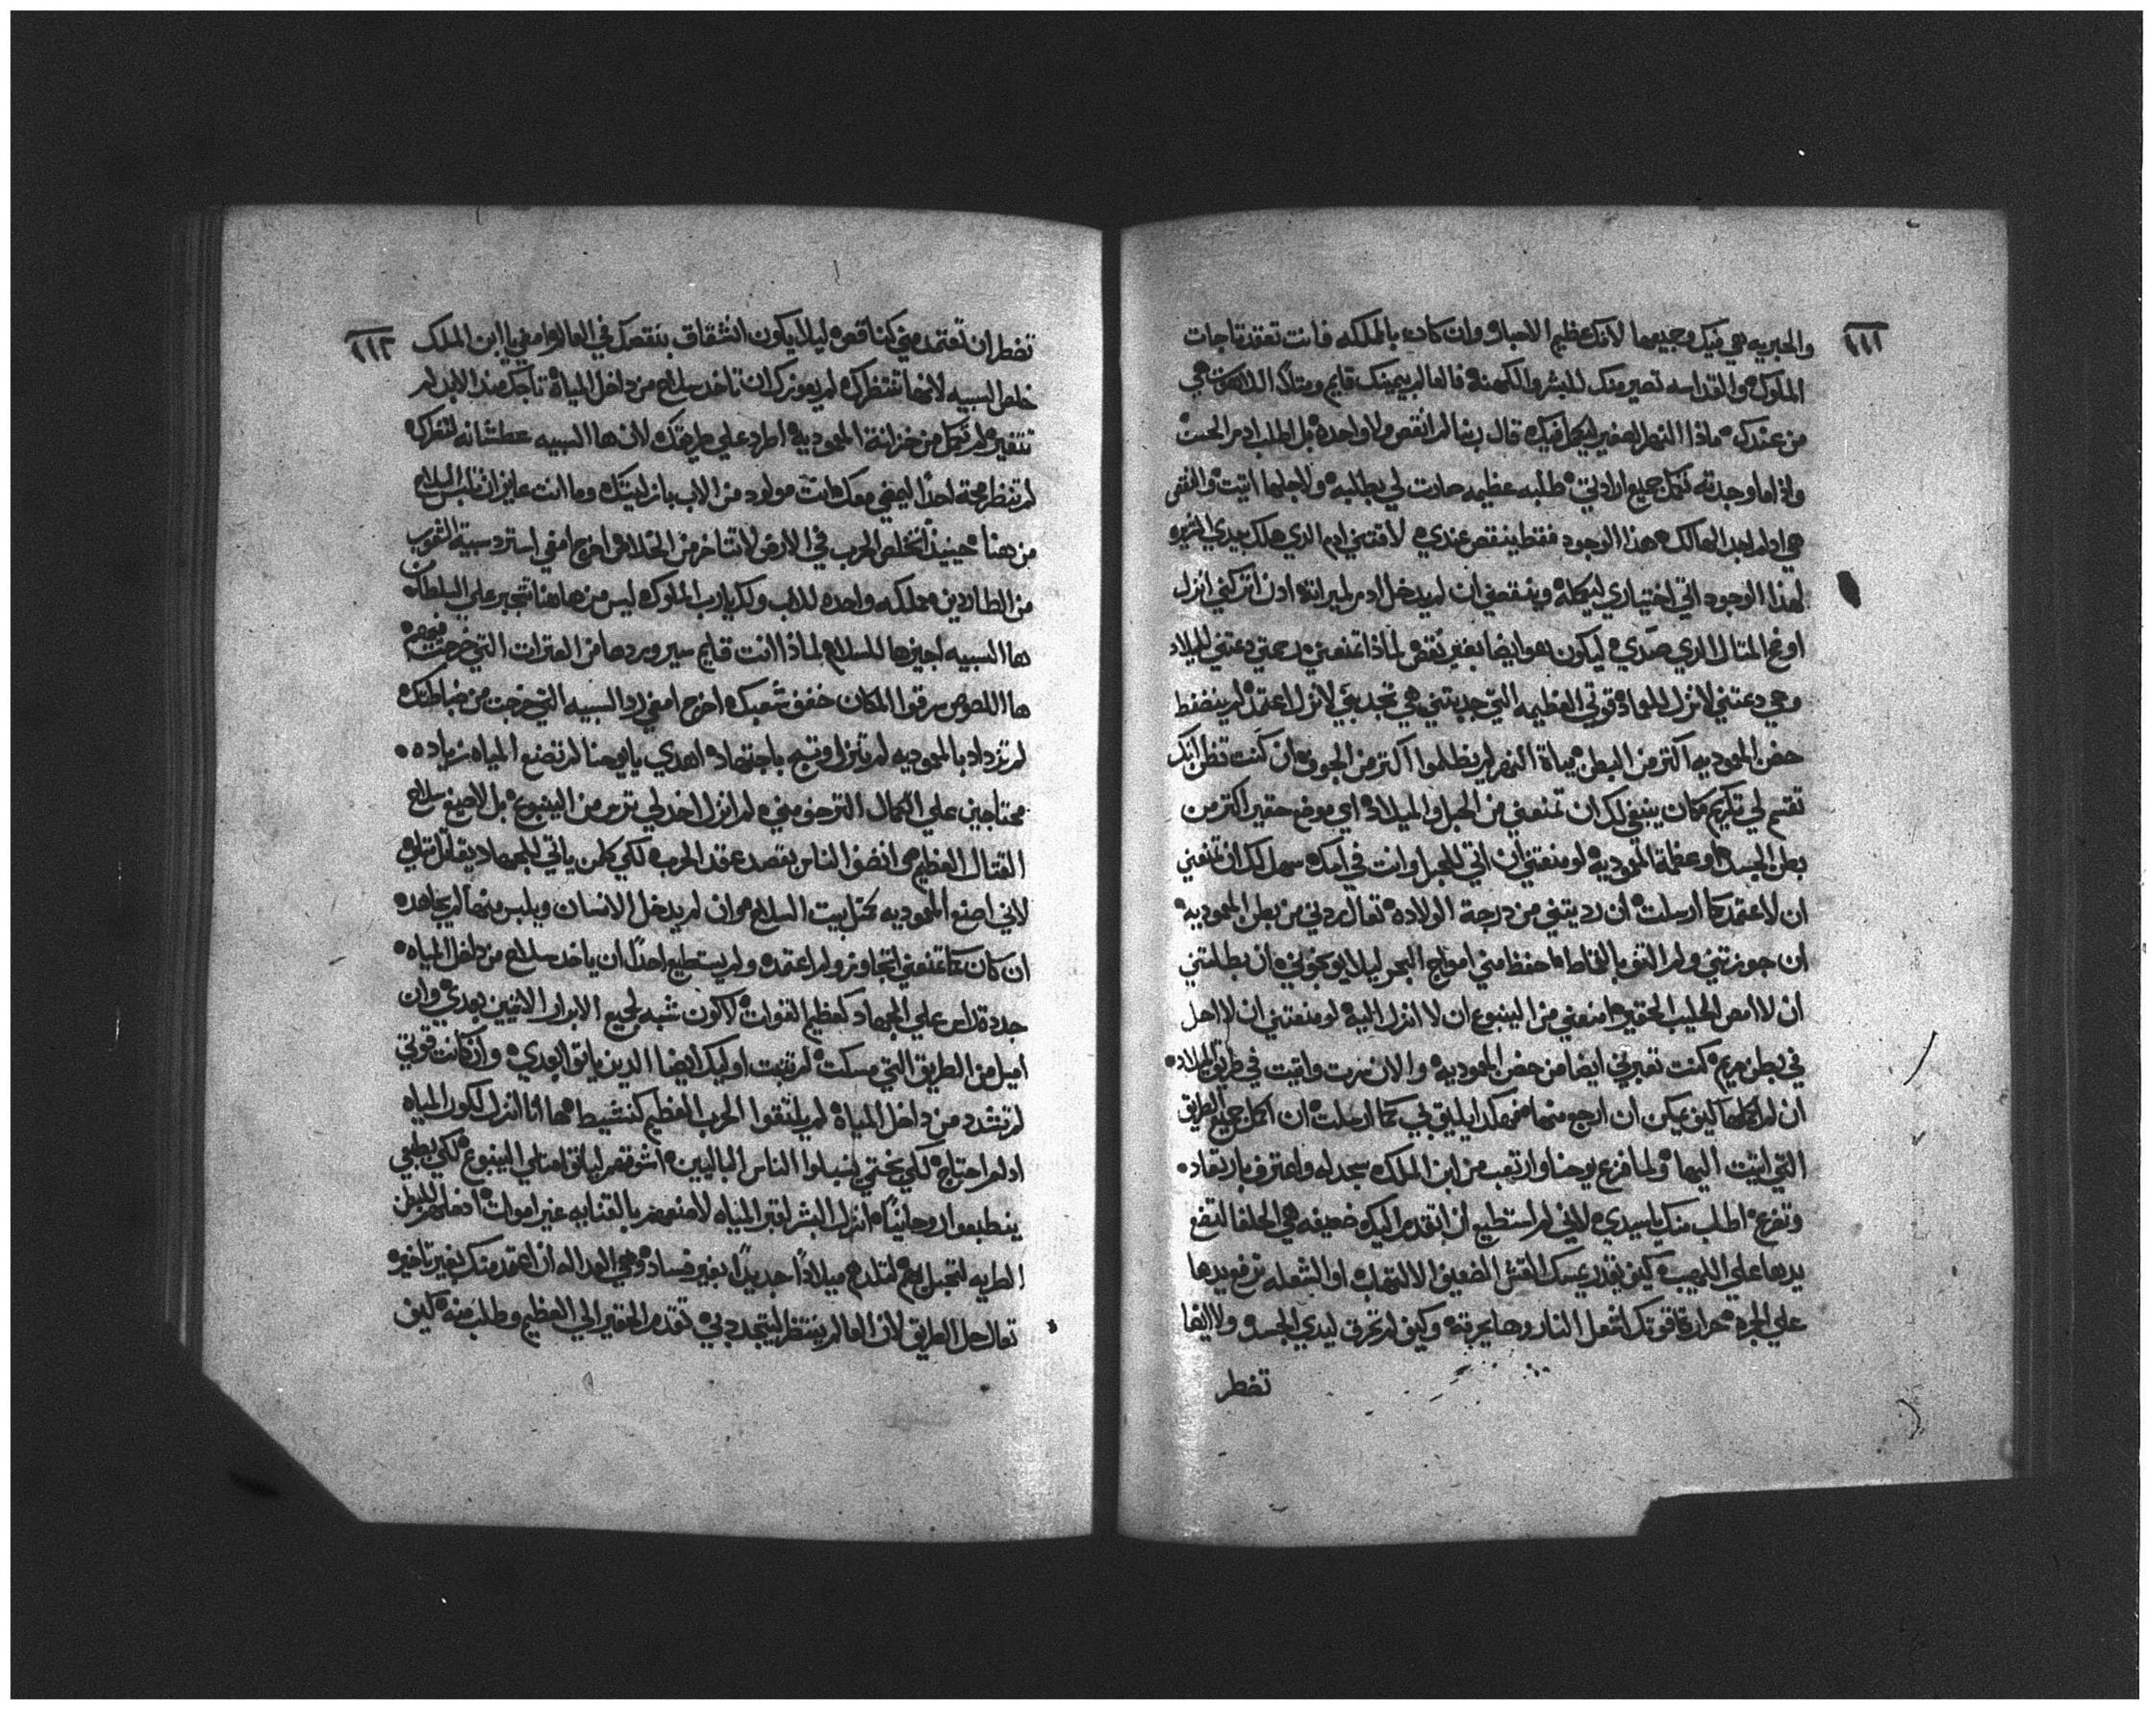 ١١١
والحبريه هي فيك وجميعها لانك عظيم الاحبار وان كان بالملكه فانت تعقد تاجات
الملوك والقداسه تصير منك للبشر والكهنة فالعالم بيمينك قايم ومتلا اللاهوت هي
من عندك ماذا النهر الصغير ليكمل فيك قال ربنا لم انقص ولا واحده بل اطلب ادم الحيت
واذا ما وجدته تكمل جميع ارادتي طلبه عظيمه صارت لي بطلبه ولاجلها اتيت والنقص
هي ادلم اجد الهالك هذا الوجود فقط ينقص عندي لاقتني ادم الذي هلك بيدي
لهذا الوجود اتي اختياري ليكمله وينقصني ان لم يدخل ادم لميراثه ادن اتركني انزل
المتال الذي صدي ليكون هو ايضا بغير نقص لماذا تمنعني رحمتي دعتني للميلاد
وهي دعتني لانزل للعماد قوتي العظيمه التي جدبتني هي تجدبني لانزل اعتمد لم ينضغط
حضن المعموديه اكتر من البطن مياة النهر لم يظلموا اكتر من الجوف ان كنت تظن انك
تقتم لي تكريم كان ينبغي لك ان تمنعني من الحبل والميلاد اي موضع حقير اكتر من
بطن الجسد او عظمة المعموديه لو منعتني ان اتي للحبل وانت في امك سهل لك ان تمنعني
ان لا اعتمد كما ارسلت ان رديتني من درجة الولاده تعال ردني من بطن المعموديه
ان جوزتني ولم التف بالقماط احفظ مني امواج البحر ليلا يوبخوني ان بطلتني
ان لا امص الحليب الحقير امنعني من الينبوع ان لا انزل اليه لو منعتني ان لا احل
في بطن مريم كنت تعبرني ايضا من حضن المعموديه والان سرت واتيت في طريق الميلاد
ان لم اكملها كيف يمكن ان ارجع منها فهكدا يليق بي كما ارسلت ان اكمل جميع الطريق
التي اتيت اليها ولما فزع يوحنا وارتعب من ابن الملك سجد له واعترف بارتعاد
وتضرع اطلب منك يا سيدي لاني لم استطيع ان اتقدم اليك ضعيفه هي الحلفا لتضع
يدها علي اللهيب كيف يقدر يمسك القش الضعيف الالتهاب او الشعله ترفع يدها
علي الجره حرارة قوتك لتفعل النار وها يحرقه وكيف لم تحرق ليدي الجسد ولا ايضا
تضطر
١١٢
تضطر ان تعتمد مني كناقص ليلا يكون انشقاق بنقصك في العالم امضي يا ابن الملك
خلص السبيه لانها تنتظرك لم يعوزك ان تاخد سلاح من داخل المياة تاجك مند الابد لم
تتغير لم تكمل من خزانة المعموديه اطرد علي طريقك لان ها السبيه عطشانه لتنظرك
لم تنتظر محبة احدا ليمضي معك انت مولود من الاب بازليتك وما انت عايز ان تلبس السلاح
من هنا حينيذ تخلص الحرب في الارض لا تتاخر من الخلاص اخرج امضي استرد سبية الشعوب
من الطاردين مملكه واحده للاب ولك يا رب الملوك ليس من هاهنا تتجبر علي السلطان
ها السبيه اجيزها للسلام لماذا انت قايم سير وردها من العترات التي خرجت فيهم
ها اللصوص سرقوا المكان خفف شعبك اخرج امضي رد السبيه التي خرجت من ضباطتك
لم تزداد بالمعموديه لم تنزل وتسبح باجتهاد اهدي يا يوحنا لم تصنع المياه زياده
محتاجين علي الكمال اكتر من مني لم انزل اخد لي ترس من الينبوع بل لاصيغ سلاح
القتال العظيم هي انصف الناس بقصد عقد الحرب لكي كلمن ياتي للجهاد يقاتل قتله
لاني اصنع المعموديه كمثل بيت السلاح هو ان لم يدخل الانسان ويلبس منها لم يجاهد
ان كان كما تمنعني اتجاوز ولم اعتمد ولم يستطيع احدا ان ياخد سلاح من داخل المياه
جددة راس علي الجهاد كعظيم القوات لاكون شبه لجميع الابرار الاتيين بعدي وان
اميل من الطريق التي مسكت لم تتبت اوليك ايضا الدين ياتوا بعدي وان كانت قوتي
لم تشدد من داخل المياة لم يلتقوا الحرب العظيم كنشيط ها انا انزل لكون المياه
ادلم احتاج لكي يختتمي لنسلوا الناس الباليين اشوتهم ليلتق امتلي الينبوع لكي بطبعي
ينطبعوا روحانيا انزل البشر لقبر المياه لامنهم بالقنابه غير اموات ادخلهم للبطن
الطريه لتحبل بهم لتلدهم ميلادا جديدا بغير فساد وهي العداله ان اعتمد منك بغير تاخير
تعال حل الطريق لان العالم ينتظر ليتجدد بي تقدم الحقير الي العظيم وطلب منه كيف